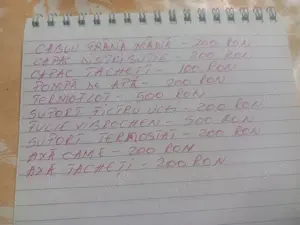 CABLU FRANA MANA - 200 RON
CAPAC DISTRIBUTIE - 200 RON
CAPAC TACHETI - 100 RON
POMPA DE APA - 200 RON
TERMOFLOT - 500 RON
SUPORT FILTRU ULEI - 200 RON
FULIE VIBROCHEN - 500 RON
SUPORT TERMOSTAT - 200 RON
AXA CAME - 200 RON
AXA TACHETI - 200 RON